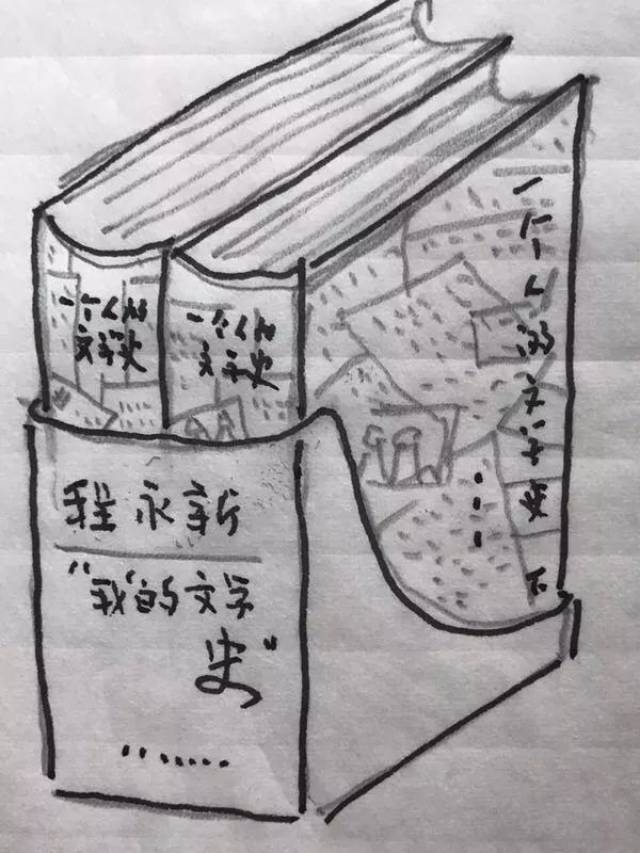 一个人的
文学史
一个人的
文学史
一个人的文学史
下
程永新
"我"的文学
史"
........